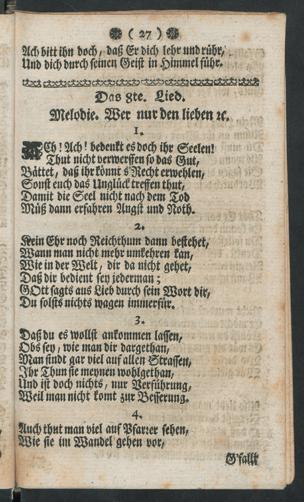 ( 27 )
Ach bitt ihn doch, daß Er dich lehr und rühr,
Und dich durch seinen Geist in Himmel führ.
Das 8te. Lied.
Melodie. Wer nur den lieben ꝛc.
1.
ACh! Ach! bedenkt es doch ihr Seelen!
Thut nicht verwerffen so das Gut,
Bättet, daß ihr könnt s Recht erwehlen,
Sonst euch das Unglück treffen thut,
Damit die Seel nicht nach dem Tod
Müß dann erfahren Angst und Noth.
2.
Kein Ehr noch Reichthum dann bestehet,
Wann man nicht mehr umkehren kan,
Wie in der Welt, dir da nicht gehet,
Daß dir bedient sey jederman;
GOtt sagts aus Lied durch sein Wort dir,
Du solsts nichts wagen immerfür.
3.
Daß du es wollst ankommen lassen,
Obs sey, wie man dir dargethan,
Man findt gar viel auf allen Strassen,
Ihr Thun sie meynen wohlgethan,
Und ist doch nichts, nur Verführung,
Weil man nicht komt zur Besserung.
4.
Auch thut man viel auf Pfarrer sehen,
Wie sie im Wandel gehen vor,
G'fallt